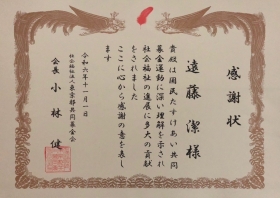 感謝状
遠藤潔様
貴殿は国民たすけあい共同
募金運動に深い理解を示され
社会福祉の進展に多大の貢献
をされました
ここに心から感謝の意を表し
ます
令和六年十一月一日
社会福祉法人東京都共同募金会
会長 小林健